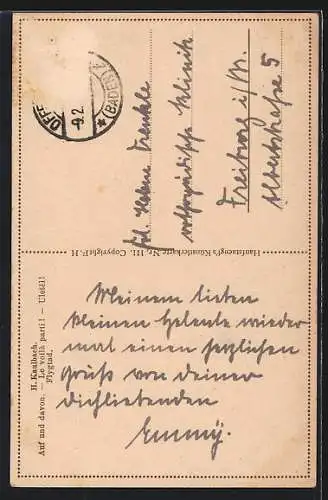 H. Kaulbach.
Auf und davon. — Le voilà parti! — Ulétél!
Flygtad.
Hanfstaengl's Künstlerkarte Nr. 111. Copyright F. H.
OFFE
-9.2.
* (BADEN)
Frl. Helene
orthopädische Klinik
Freiburg i/Br.
Albertstraße 5
Meinem lieben
kleinen Helenle wieder
mal einen herzlichen
Gruß von deiner
dichliebenden
Emmy.